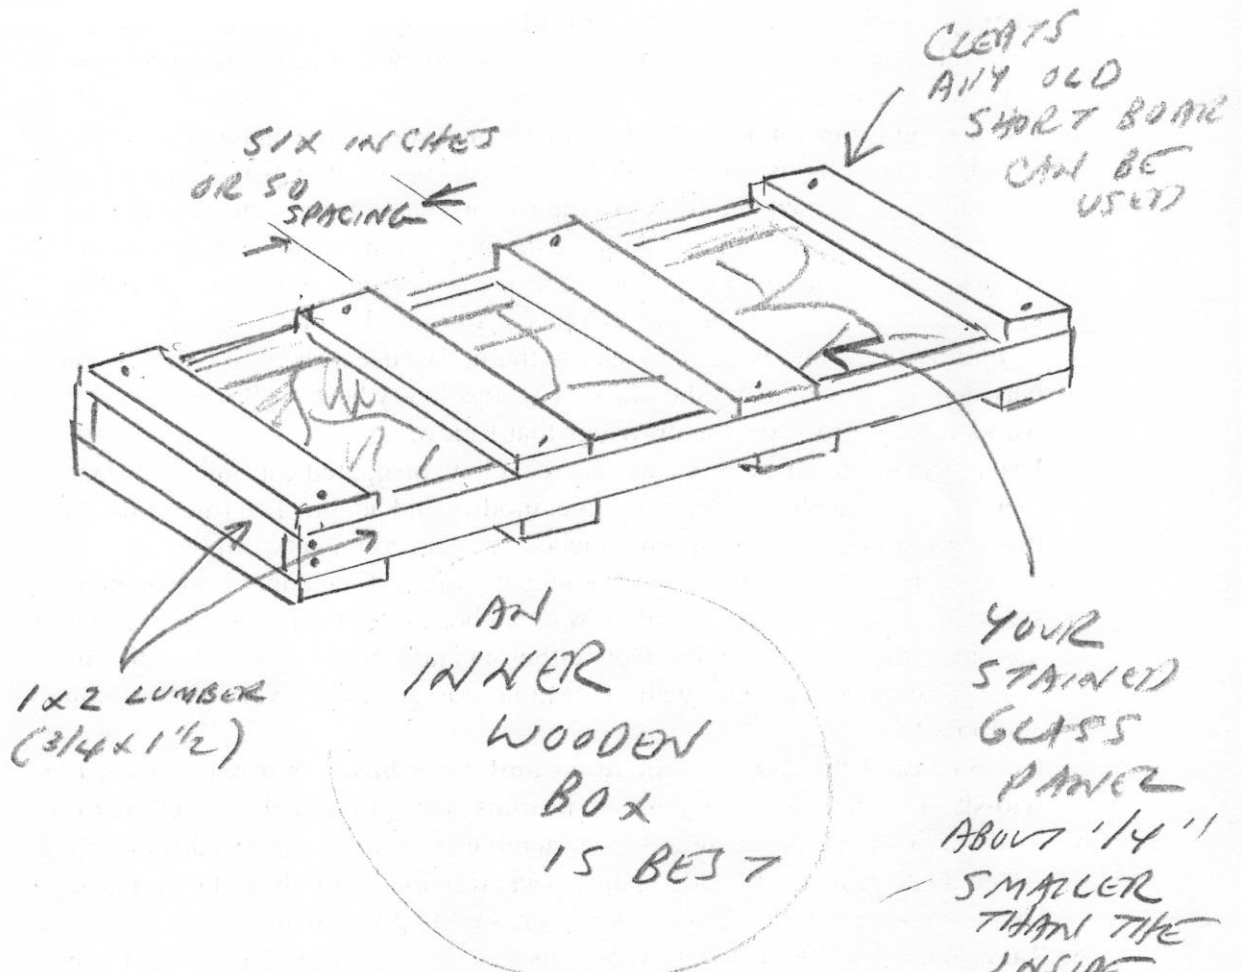 CLEATS
ANY OLD
SHORT BOAR
CAN BE
USED
SIX INCHES
OR SO
SPACING
1x2 LUMBER
(3/4 x 1 1/2)
AN
INNER
WOODEN
BOX
IS BEST
YOUR
STAINED
GLASS
PANEL
ABOUT 1/4"
SMALLER
THAN THE
INSIDE